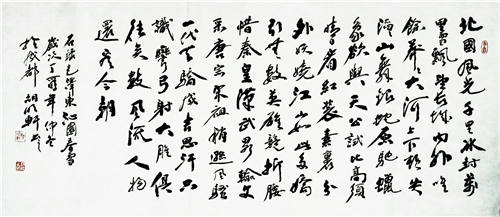 北國風光千里冰封萬
里雪飄望長城內外唯
餘莽莽大河上下頓失
滔滔山舞銀蛇原馳蠟
象欲與天公試比高須
晴日看紅裝素裹分
外妖嬈江山如此多嬌
引無數英雄競折腰
惜秦皇漢武略輸文
采唐宗宋祖稍遜風騷
一代天驕成吉思汗只
識彎弓射大雕俱
往矣數風流人物
還看今朝
毛澤東沁園春雪
歲次丁年仲冬
於成都